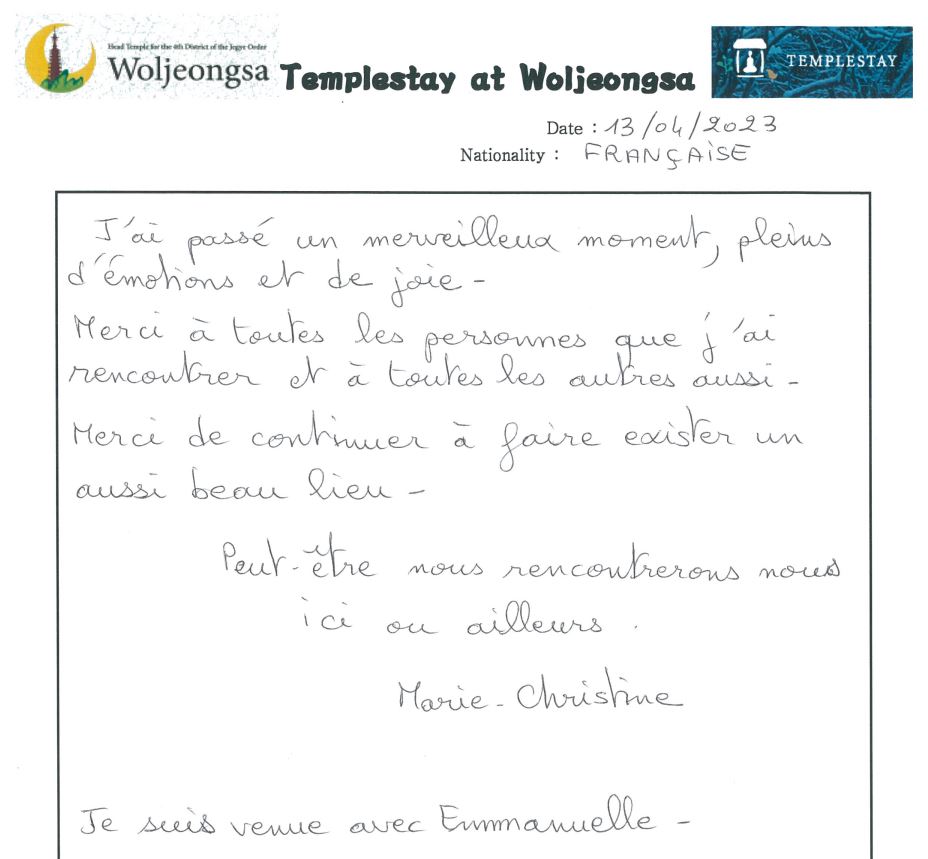 Head Temple for the 4th District of the Jogye Order
Woljeongsa
Templestay at Woljeongsa
TEMPLESTAY
Date : 13/04/2023
Nationality : FRANÇAISE
J'ai passé un merveilleux moment, pleins
d'émotions et de joie -
Merci à toutes les personnes que j'ai
rencontrer et à toutes les autres aussi -
Merci de continuer à faire exister un
aussi beau lieu -
Peut-être nous rencontrerons nous
ici ou ailleurs.
Marie-Christine
Je suis venue avec Emmanuelle -